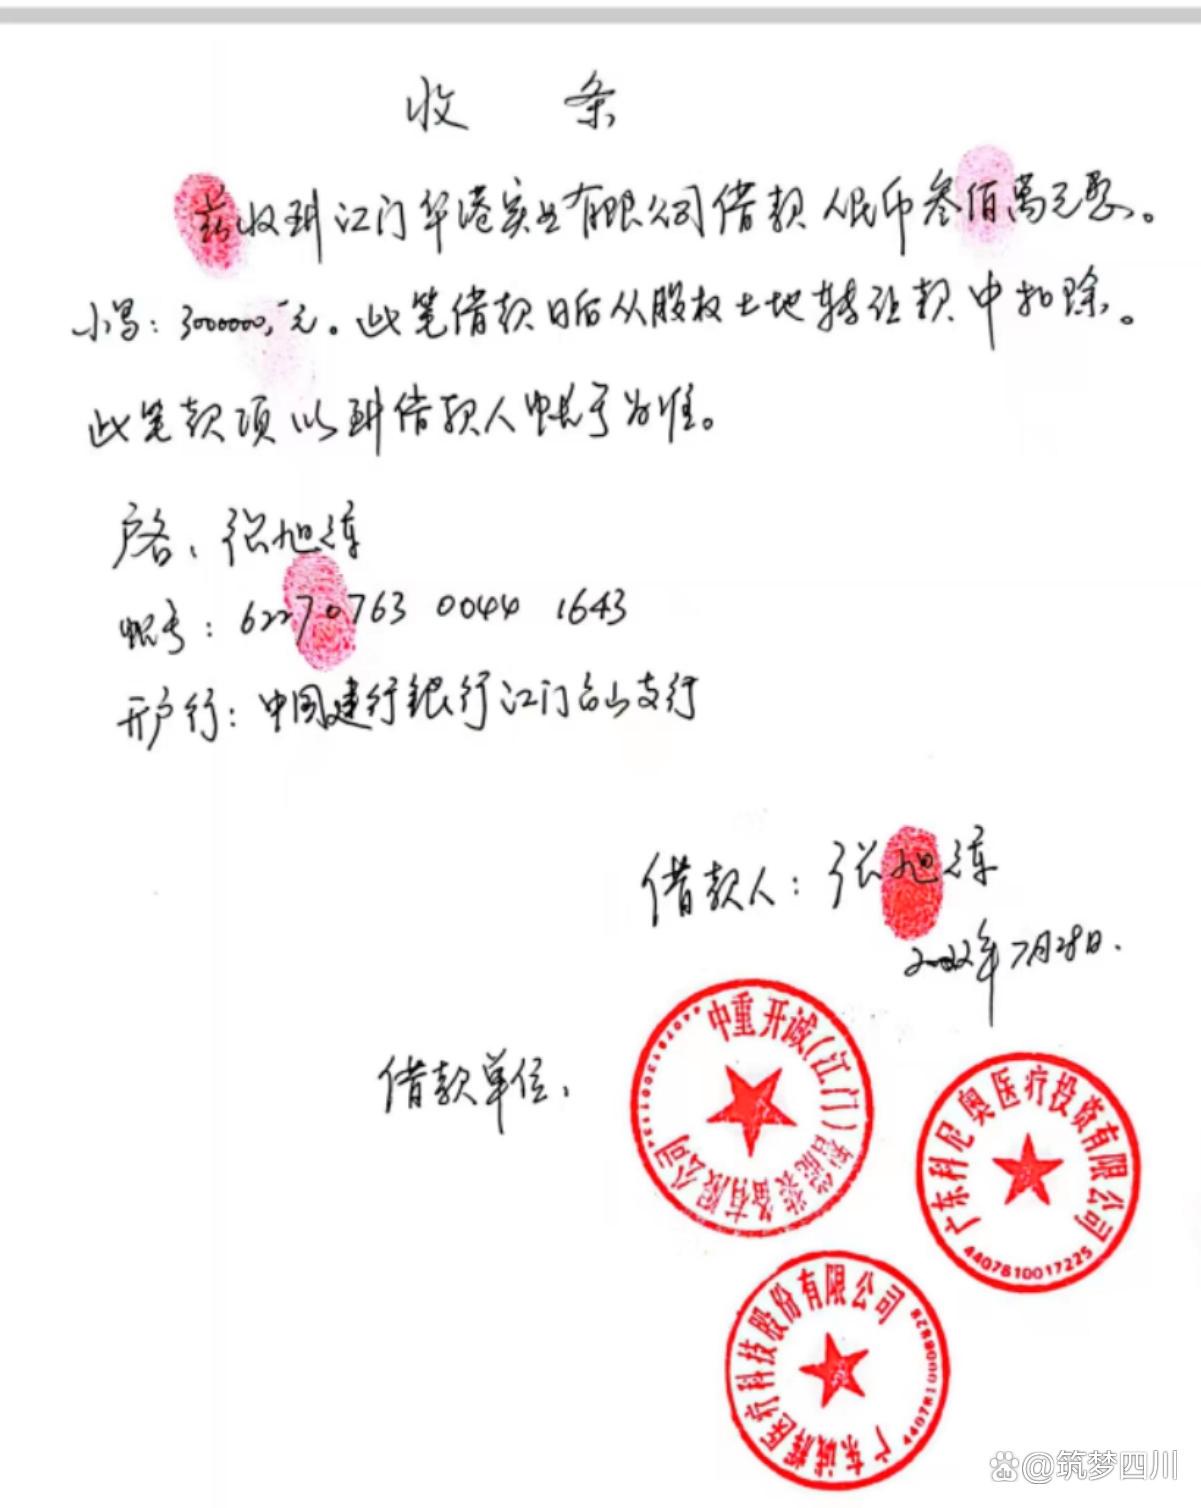 收 条
兹收到江门华港实业有限公司借款人民币叁佰萬元整。
小写:3000000,元。此笔借款日后从股权土地转让款中扣除。
此笔款项以到借款人帐号为准。
户名:张旭涛
帐号:62270763 0044 1643
开户行:中国建行银行江门台山支行
借款人:张旭涛
2022年7月28日.
借款单位:
中重开诚(江门)智能装备有限公司
广东科尼奥医疗投资有限公司
4407810017225
广东诚辉医疗科技股份有限公司
4407810008828
@筑梦四川